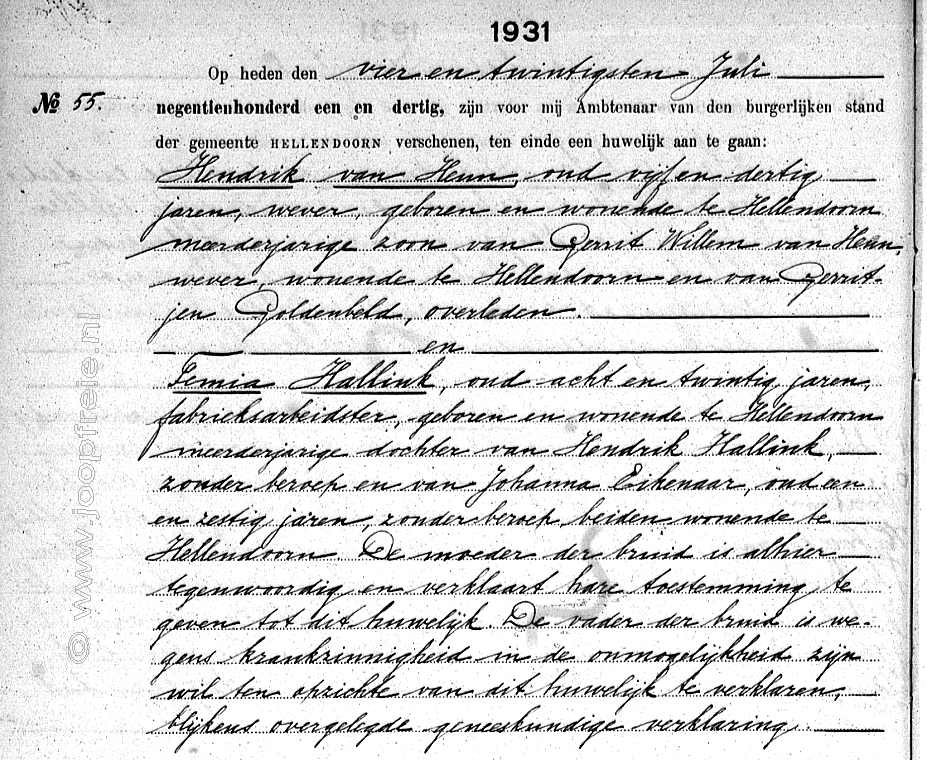 1931
Op heden den vier en twintigsten Juli
№ 55.
negentienhonderd een en dertig, zijn voor mij Ambtenaar van den burgerlijken stand
der gemeente HELLENDOORN verschenen, ten einde een huwelijk aan te gaan:
Hendrik van Heun, oud vijf en dertig
jaren, wever, geboren en wonende te Hellendoorn
meerderjarige zoon van Gerrit Willem van Heun,
wever, wonende te Hellendoorn en van Gerrit-
jen Goldenbeld, overleden.
en
Femia Hallink, oud acht en twintig jaren,
fabrieksarbeidster, geboren en wonende te Hellendoorn
meerderjarige dochter van Hendrik Hallink,
zonder beroep en van Johanna Eikenaar, oud een
en zestig jaren, zonder beroep beiden wonende te
Hellendoorn. De moeder der bruid is alhier
tegenwoordig en verklaart hare toestemming te
geven tot dit huwelijk. De vader der bruid is we-
gens krankzinnigheid in de onmogelijkheid zijn
wil ten opzichte van dit huwelijk te verklaren,
blijkens overgelegde geneeskundige verklaring.
© www.joopfreie.nl